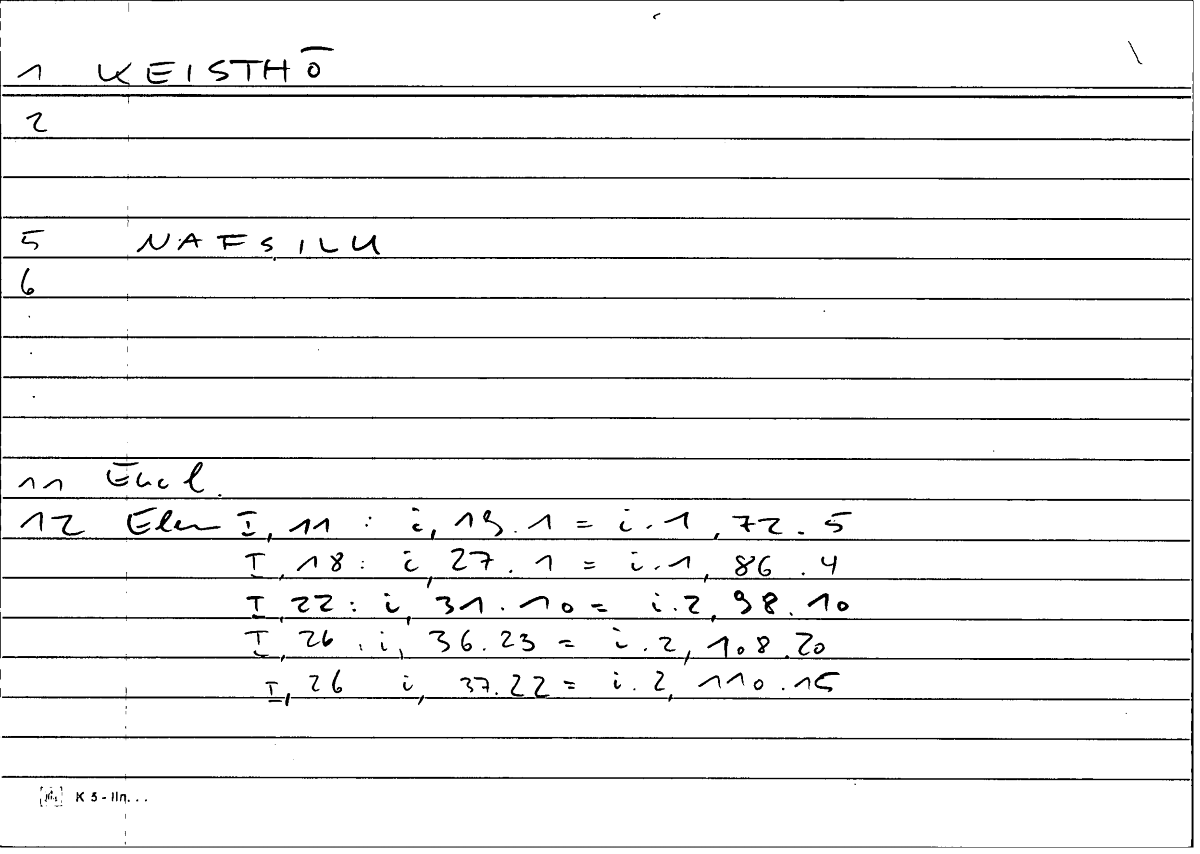 1 KEISTHŌ
2
5 NAFSILU
6
11 Eucl.
12 Elem I, 11 : i, 19.1 = i.1, 72.5
I, 18 : i, 27.1 = i.1, 86.4
I, 22 : i, 31.10 = i.2, 98.10
I, 26 : i, 36.23 = i.2, 108.20
I, 26 i, 37.22 = i.2, 110.15
K 5 - IIn...